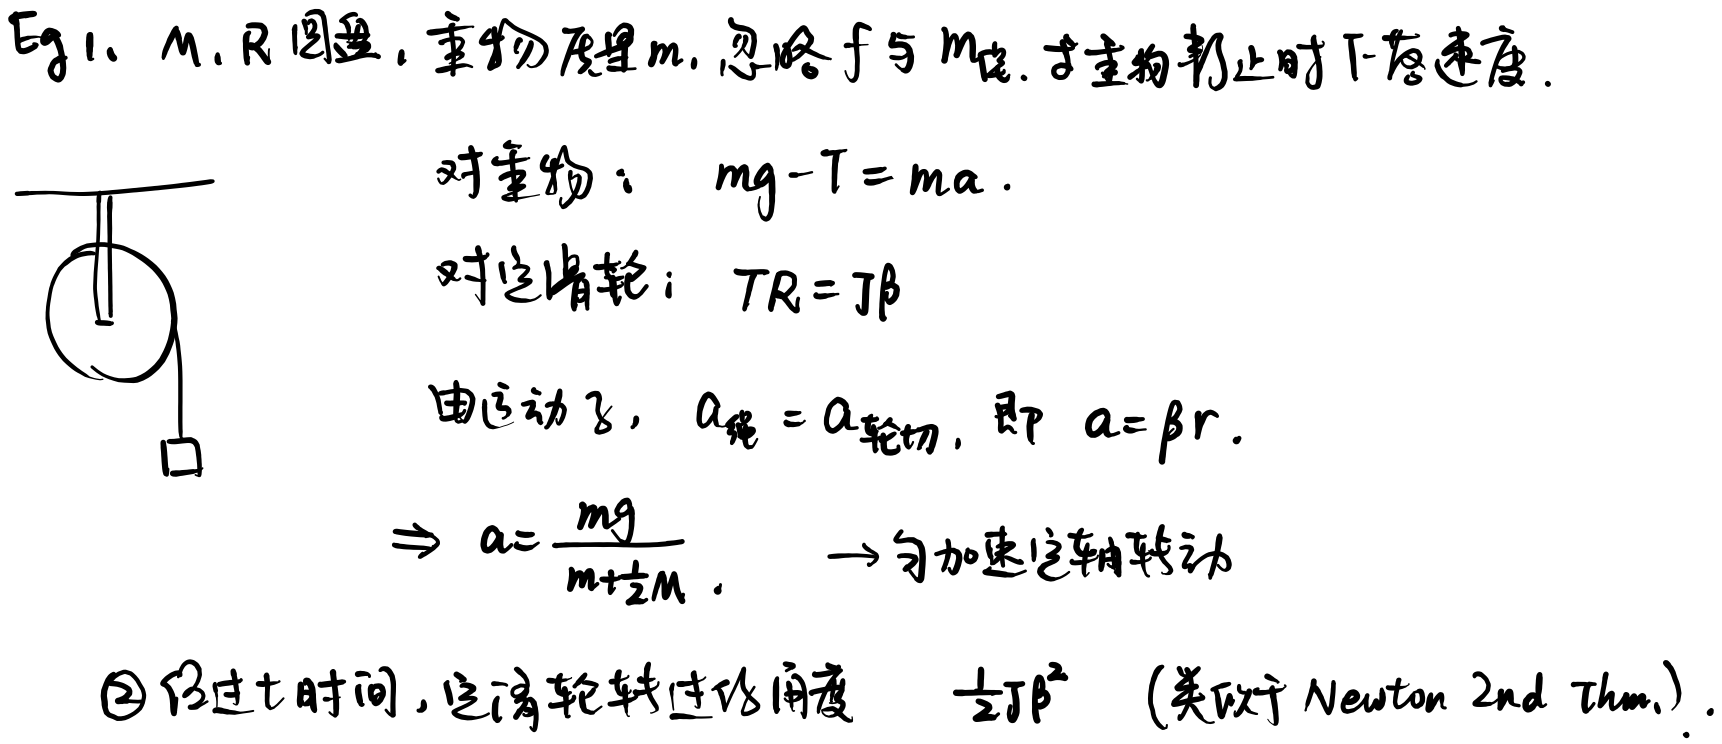 Eg 1. M, R 圆盘, 重物质量 m, 忽略 f 与 m绳. 求重物静止时下落速度.
对重物: mg - T = ma.
对定滑轮: TR = Jβ
由运动学, a绳 = a轮切, 即 a = βr.
⇒ a = mg / (m + ½M). → 匀加速定轴转动
② 经过 t 时间, 定滑轮转过的角度 ½Jβ² (类似于 Newton 2nd Thm.).